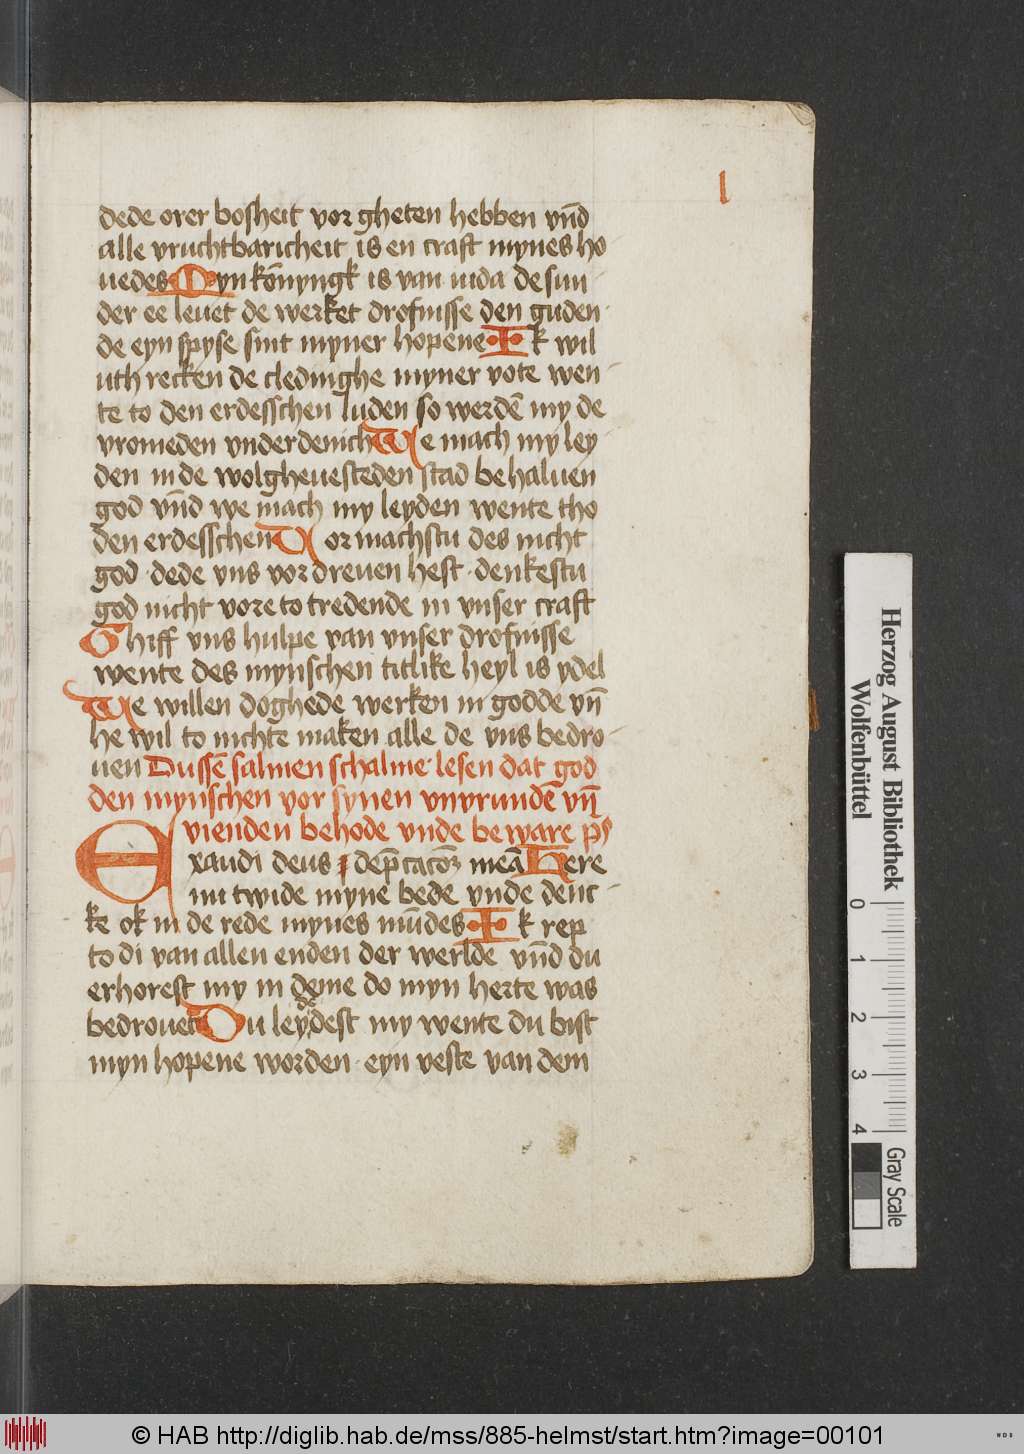 l
dede orer bosheit vor gheten hebben vn̄d
alle vruchtbaricheit is en craft mynes ho
uedes Myn kōnyngk is van iuda de sun
der ee leuet de werket drofnisse den guden
de eyn spyse sint myner hopene Ik wil
uth recken de cledinghe myner vote wen
te to den erdesschen luden so werdē my de
vromeden vnderdenich We mach my ley
den in de wolgheuesteden stad behaluen
god vn̄d we mach my leyden wente tho
den erdesschen Vor machstu des nicht
god dede vns vordreuen hest denkestu
god nicht vore to tredende in vnser craft
Ghiff vns hulpe van vnser drofnisse
wente des mynschen titlike heyl is ydel
We willen doghede werken in godde vn̄
he wil to nichte maken alle de vns bedro
uen Dussē salmen schalme lesen dat god
den mynschen vor synen vnvrundē vn̄
vienden behode vnde beware ps
Exaudi deus dep̄cacōꝫ meā Here
nu twide myne bede vnde denc
ke ok in de rede mynes mūdes Ik rep
to di van allen enden der werlde vn̄d du
erhorest my in deme do myn herte was
bedrouet Du leydest my wente du bist
de
myn hopene worden eyn veste van dem
Herzog August Bibliothek
Wolfenbüttel
0 1 2 3 4
Gray Scale
© HAB http://diglib.hab.de/mss/885-helmst/start.htm?image=00101